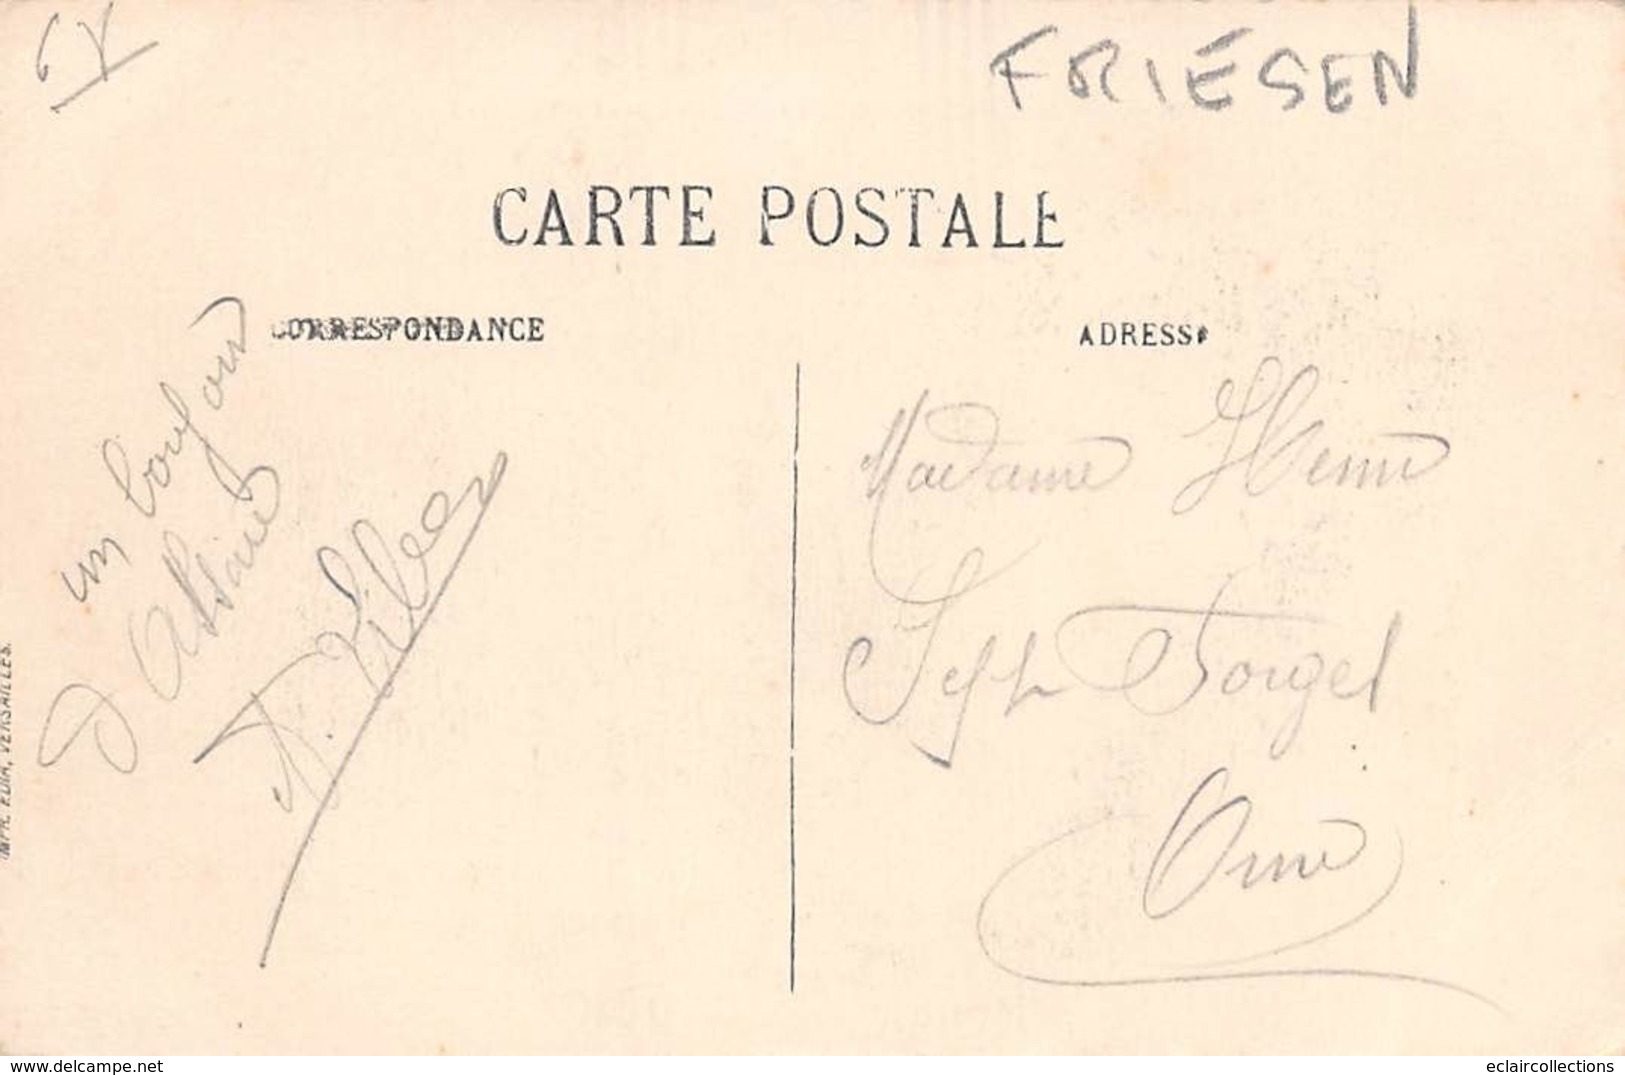 67
FRIESEN
CARTE POSTALE
CORRESPONDANCE
ADRESSE
un bonjour
d'Alsace
Madame
Sept Forges
Orne
IMPR. EDIA, VERSAILLES.
www.delcampe.net
eclaircollections